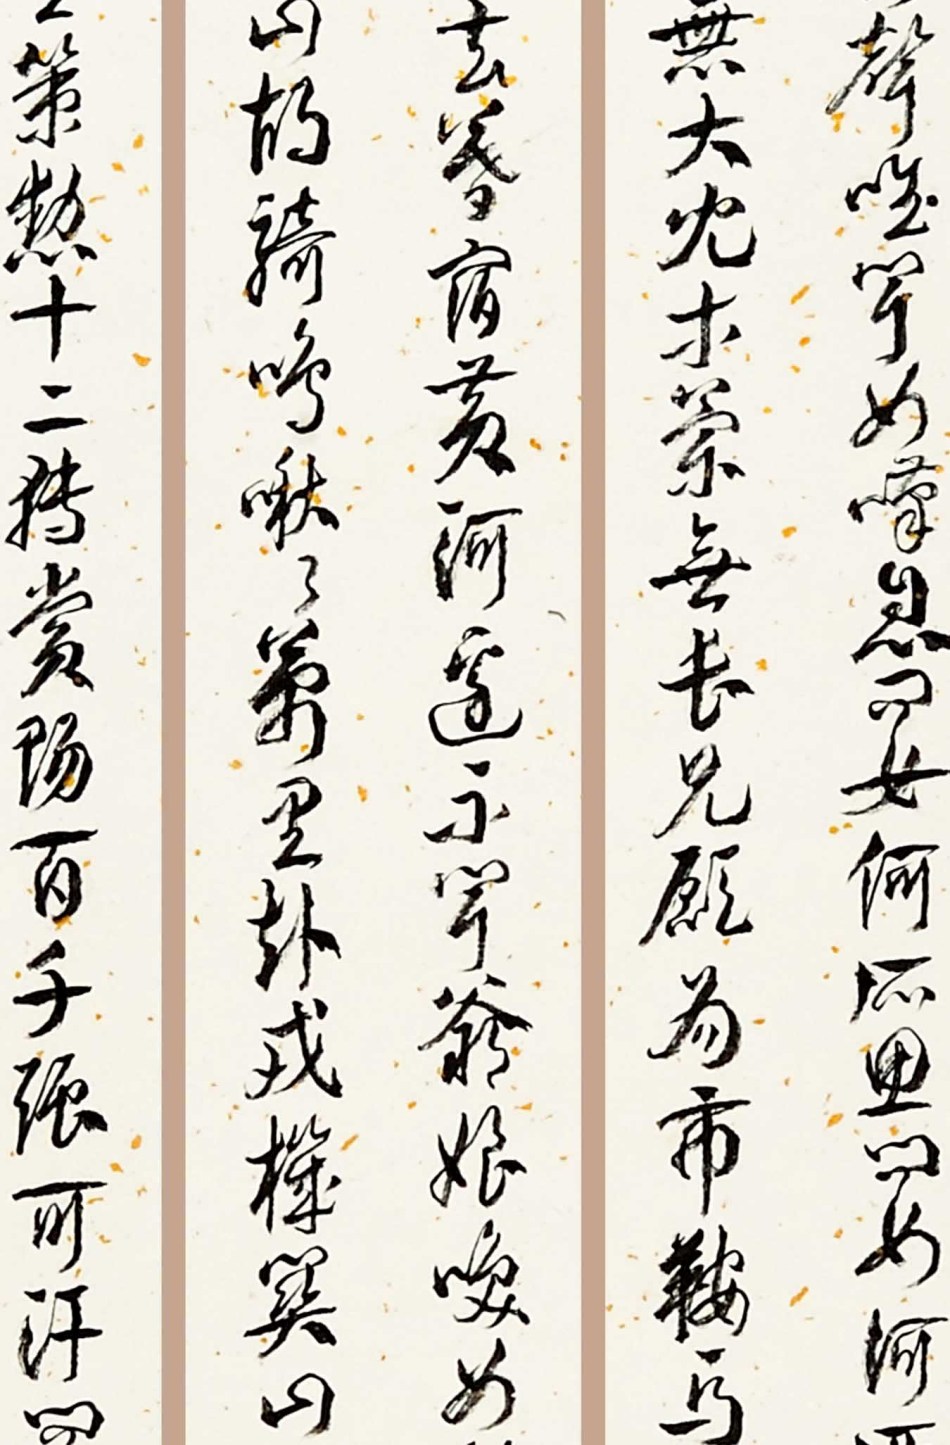 聲唯聞女嘆息問女何所思問女何
無大兒木蘭無長兄願為市鞍馬
去暮宿黃河邊不聞爺娘喚女
山胡騎鳴啾々萬里赴戎機關山
策勳十二轉賞賜百千強可汗問